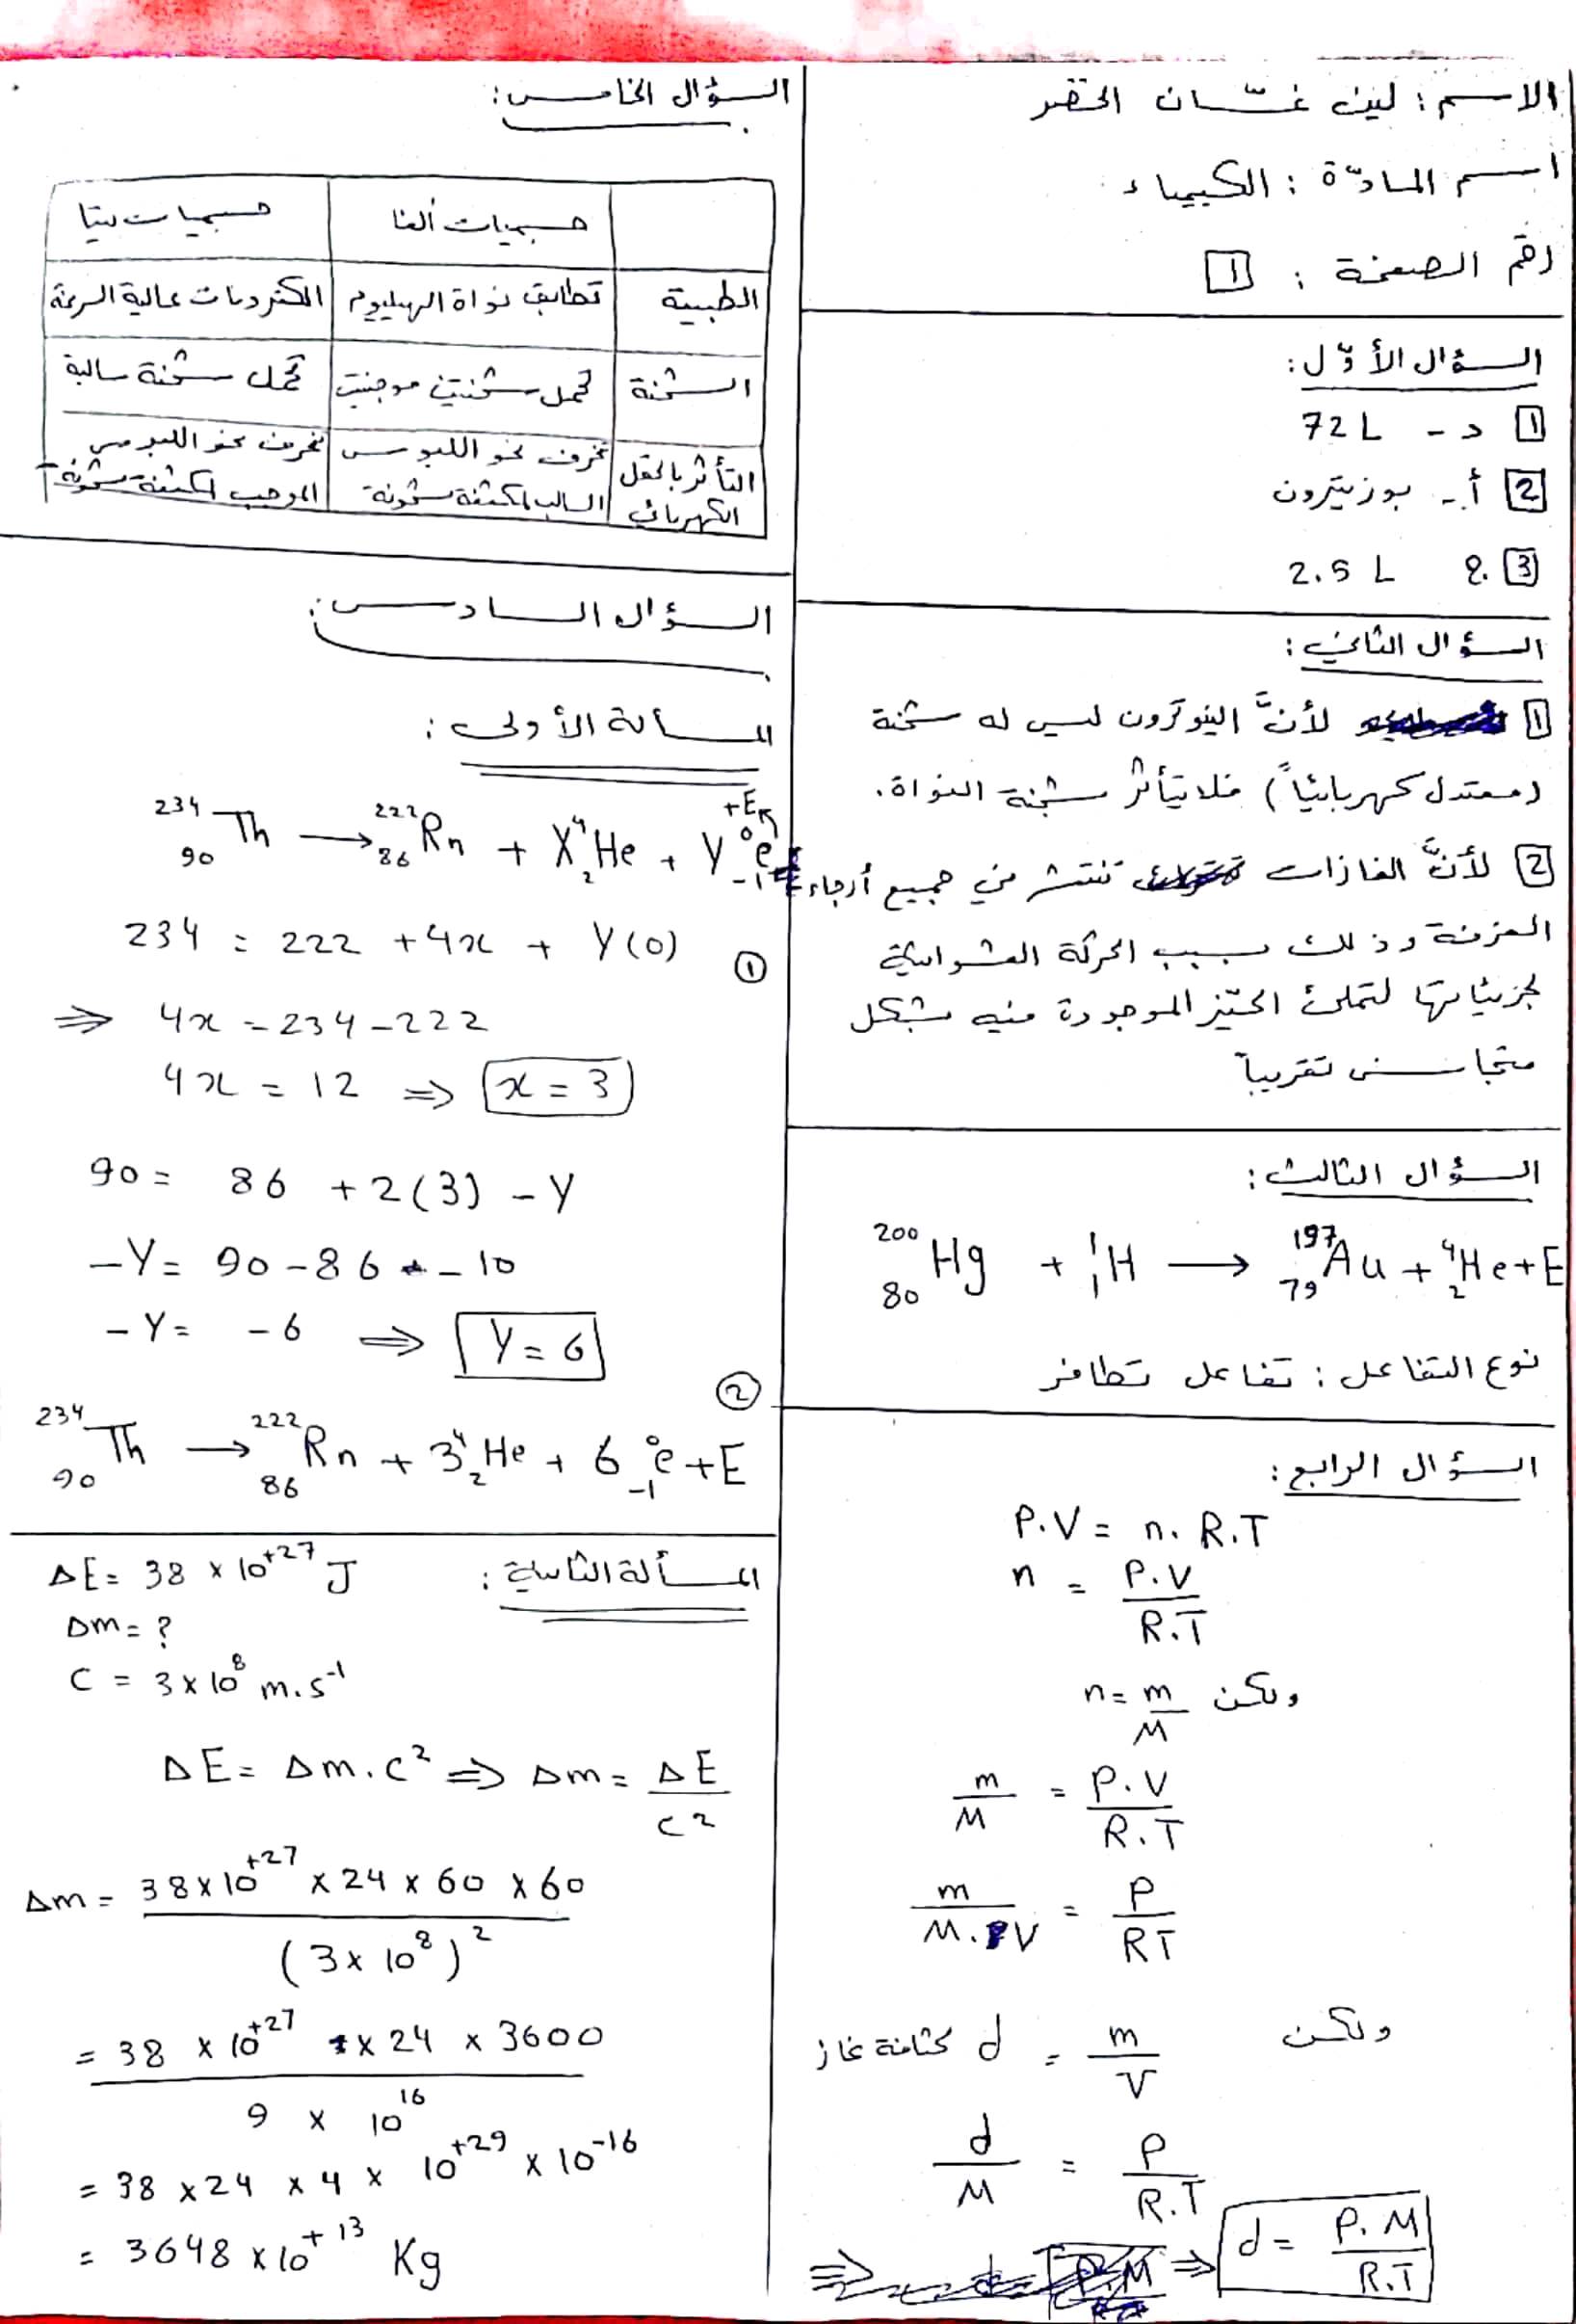 الاسم : لين غسّان الخضر
اسم المادّة : الكيمياء
رقم الصفحة : 1
السؤال الأوّل:
1 د - 72 L
2 أ - بوزيترون
3 2.5 L
السؤال الثاني :
1 لأنَّ النيوترون ليس له شحنة
(معتدل كهربائياً) فلا يتأثر بشحنة النواة.
2 لأنَّ الغازات تنتشر في جميع أرجاء
الغرفة وذلك بسبب الحركة العشوائية
لجزيئاتها لتملئ الحيّز الموجودة فيه بشكل
متجانس تقريباً
السؤال الثالث :
²⁰⁰₈₀Hg + ¹₁H → ¹⁹⁷₇₉Au + ⁴₂He + E
نوع التفاعل : تفاعل تطافر
السؤال الرابع :
P.V = n. R.T
n = P.V / R.T
ولكن n = m / M
m / M = P.V / R.T
m / M.V = P / RT
ولكن m / V = d كثافة غاز
d / M = P / R.T
⇒ d = P.M / R.T
السؤال الخامس :
جسيمات ألفا جسيمات بيتا
الطبيعة تطابق نواة الهيليوم الكترونات عالية السرعة
الشحنة تحمل شحنتين موجبتين تحمل شحنة سالبة
التأثر بالحقل الكهربائي تنحرف نحو اللبوس السالب لمكثفة مشحونة تنحرف نحو اللبوس الموجب لمكثفة مشحونة
السؤال السادس :
المسألة الأولى :
²³⁴₉₀Th → ²²²₈₆Rn + X ⁴₂He + Y ⁰₋₁e + E
① 234 = 222 + 4x + Y(0)
⇒ 4x = 234 - 222
4x = 12 ⇒ x = 3
90 = 86 + 2(3) - Y
-Y = 90 - 86 - 10
-Y = -6 ⇒ Y = 6
②
²³⁴₉₀Th → ²²²₈₆Rn + 3 ⁴₂He + 6 ⁰₋₁e + E
المسألة الثانية :
ΔE = 38 × 10⁺²⁷ J
Δm = ?
C = 3 × 10⁸ m.s⁻¹
ΔE = Δm.c² ⇒ Δm = ΔE / c²
Δm = 38 × 10⁺²⁷ × 24 × 60 × 60 / (3 × 10⁸)²
= 38 × 10⁺²⁷ × 24 × 3600 / 9 × 10¹⁶
= 38 × 24 × 4 × 10⁺²⁹ × 10⁻¹⁶
= 3648 × 10⁺¹³ Kg